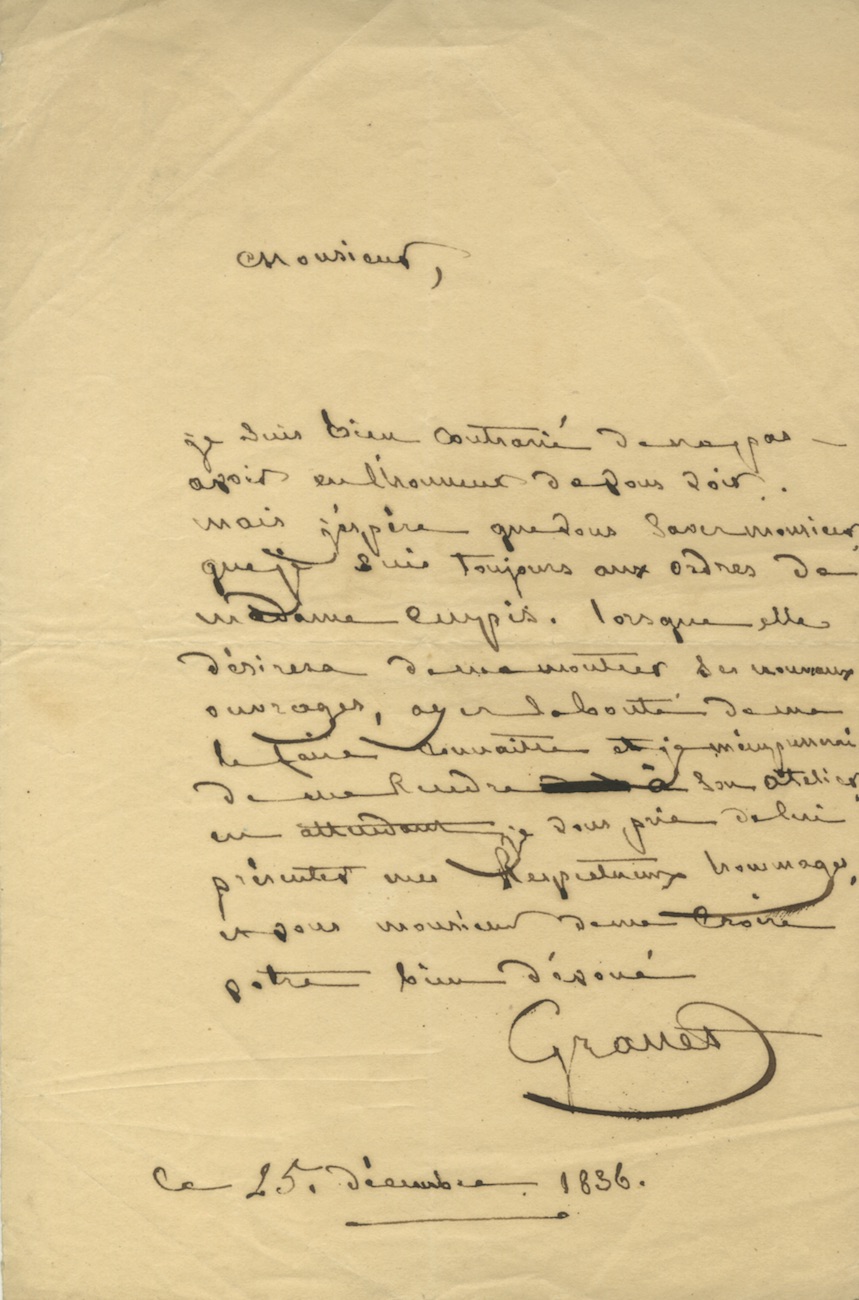 Monsieur,
je suis bien contrarié de ne pas
avoir eu l'honneur de vous voir.
mais j'espère que vous savez monsieur
que je suis toujours aux ordres de
madame . lorsque elle
désirera de me montrer ses nouveaux
ouvrages, ayez la bonté de me
le faire connaître et je m'empresserai
de me Rendre à son atelier,
en attendant je vous prie de lui
présenter mes Respectueux hommages,
et vous monsieur de me croire
votre bien dévoué
Granet
Ce 25. décembre 1836.